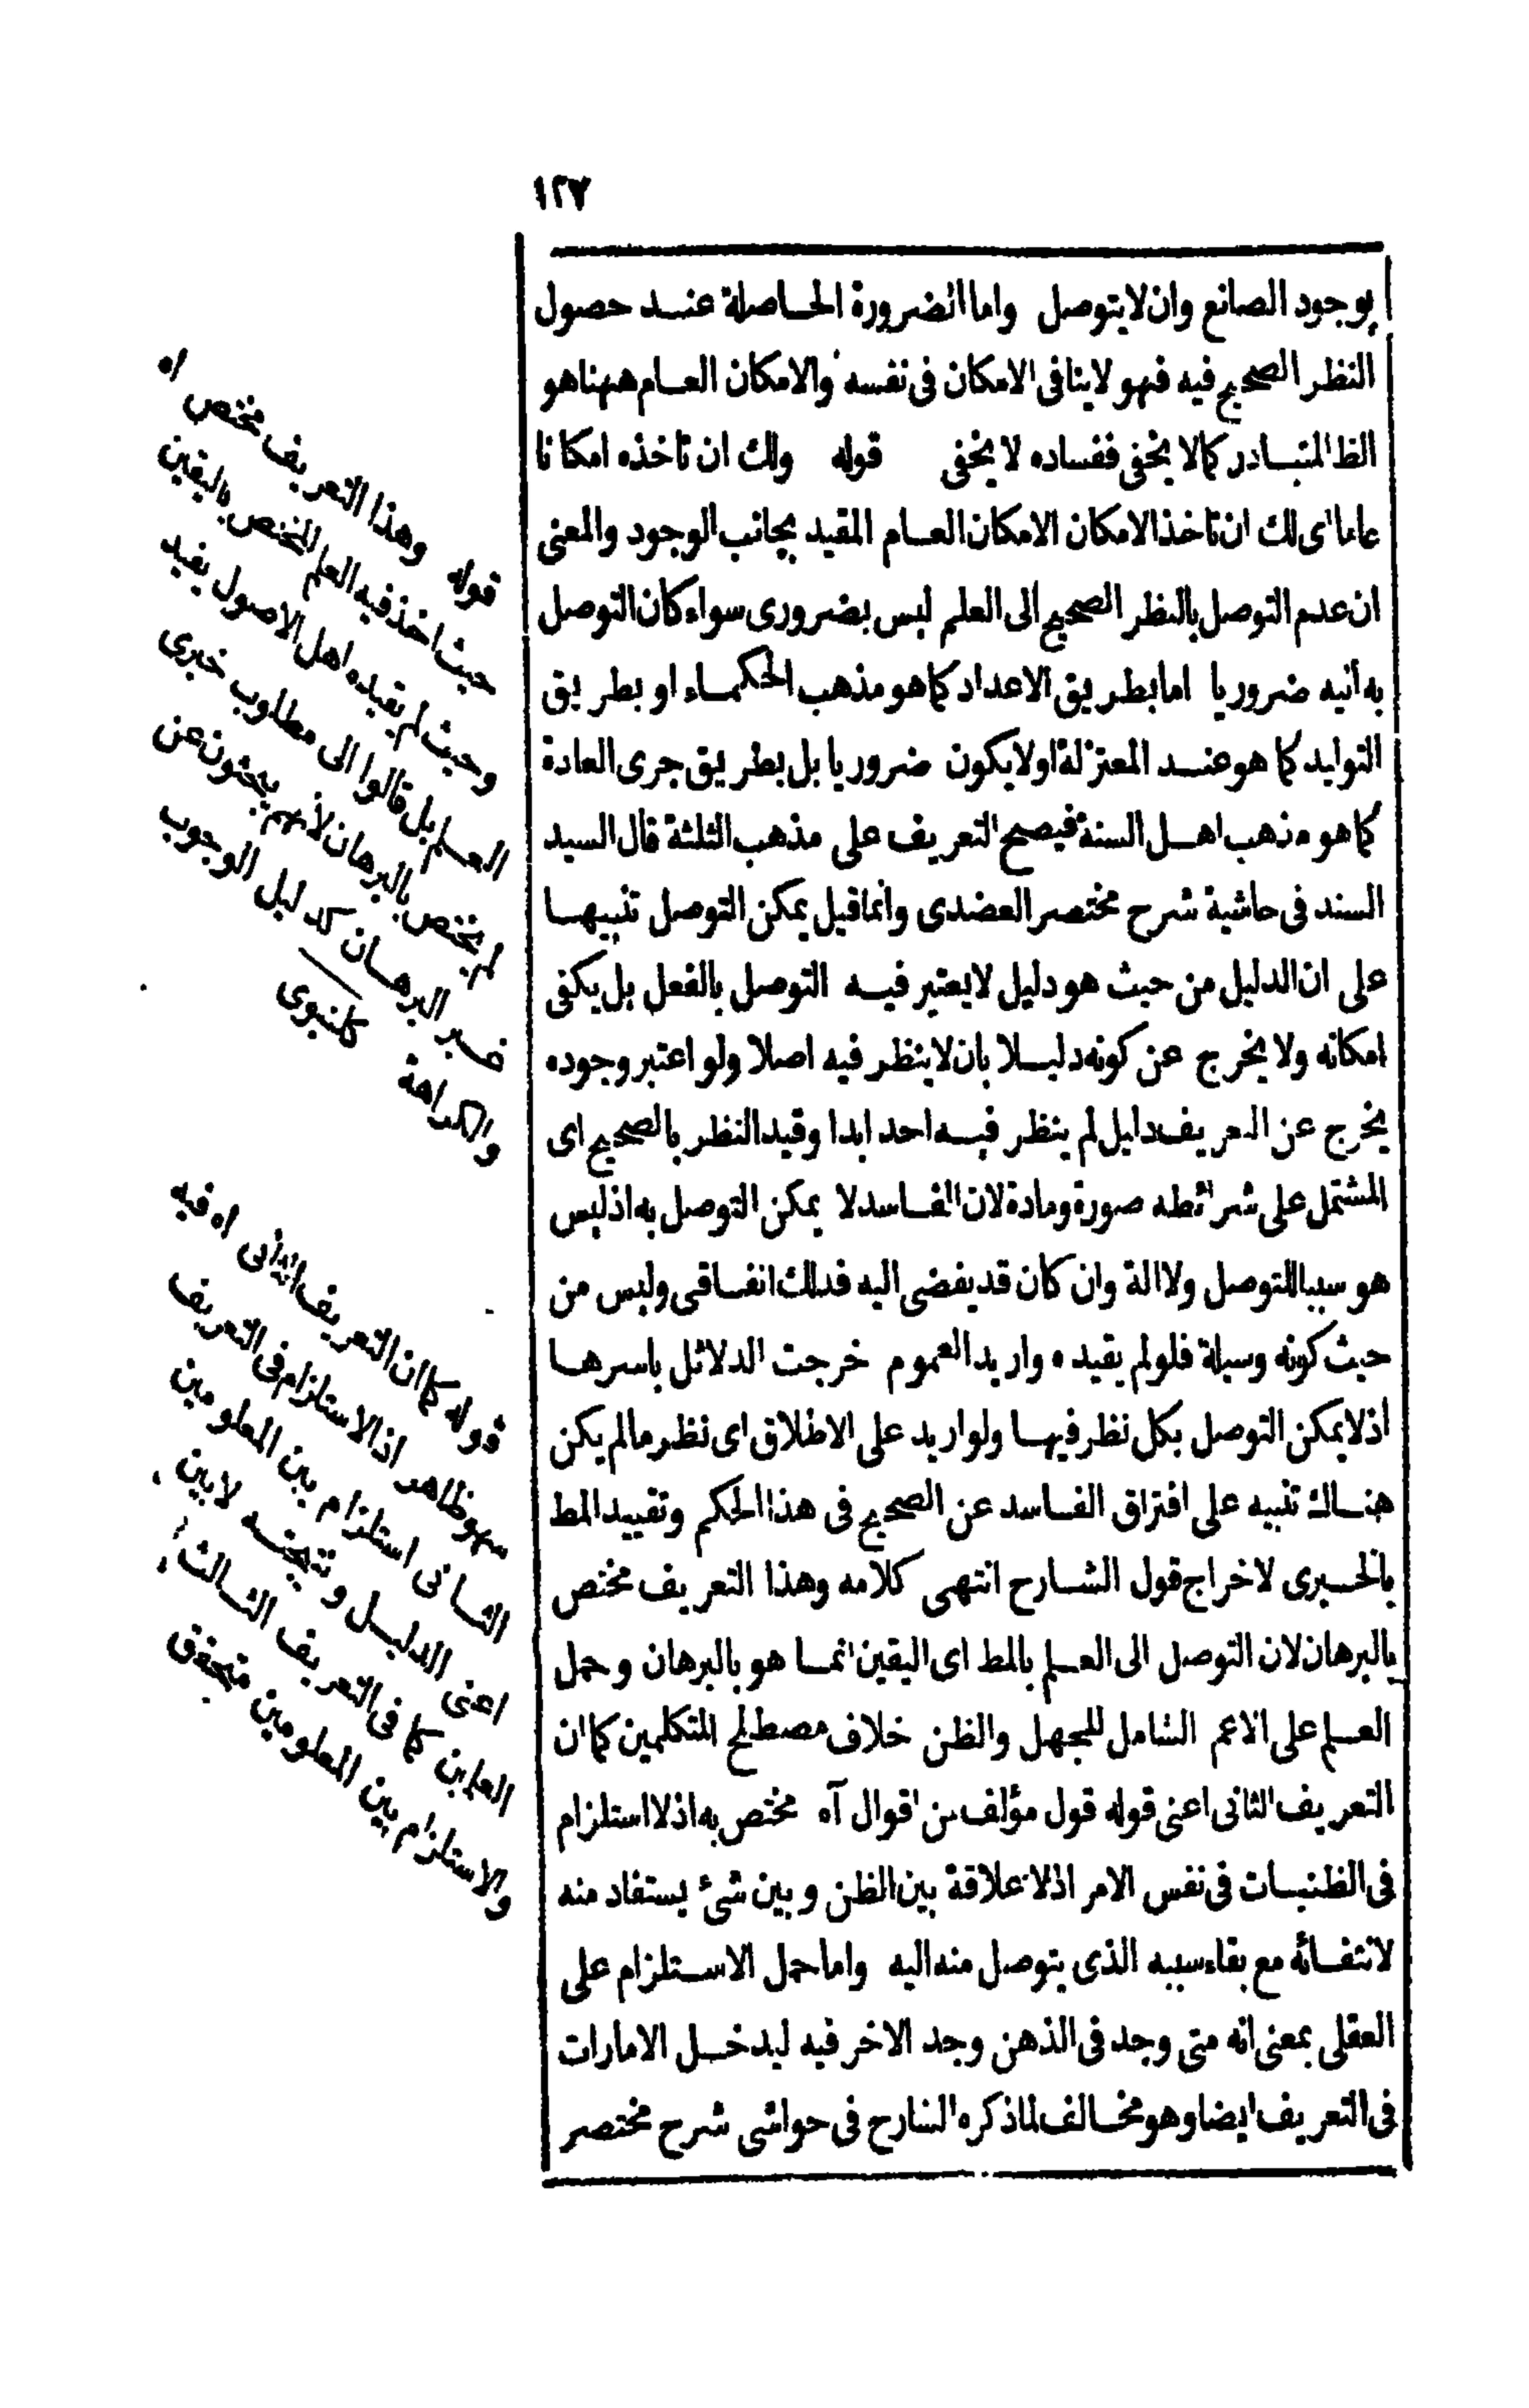 ١٢٧
بوجود الصانع وان لا يتوصل واما الضرورة الحاصلة عند حصول
النظر الصحيح فيه فهو لا ينافى الامكان فى نفسه والامكان العام ههنا هو
الظ المتبادر كما لا يخفى ففساده لا يخفى قوله ولك ان تأخذه امكانا
عاما اى لك ان تأخذ الامكان الامكان العام المقيد بجانب الوجود والمعنى
ان عدم التوصل بالنظر الصحيح الى العلم ليس بضرورى سواء كان التوصل
به اليه ضروريا اما بطريق الاعداد كما هو مذهب الحكماء او بطريق
التوليد كما هو عند المعتزلة او لا يكون ضروريا بل بطريق جرى العادة
كما هو مذهب اهل السنة فيصح التعريف على مذهب الثلثة قال السيد
السند فى حاشية شرح مختصر العضدى وانما قيل يمكن التوصل تنبيها
على ان الدليل من حيث هو دليل لا يعتبر فيه التوصل بالفعل بل يكفى
امكانه ولا يخرج عن كونه دليلا بان لا ينظر فيه اصلا ولو اعتبر وجوده
يخرج عن التعريف دليل لم ينظر فيه احد ابدا وقيد النظر بالصحيح اى
المشتمل على شرائطه صورة ومادة لان الفاسد لا يمكن التوصل به اذ ليس
هو سببا للتوصل ولا الة وان كان قد يفضى اليه فذلك اتفاقى وليس من
حيث كونه وسيلة فلو لم يقيده واريد العموم خرجت الدلائل باسرها
اذ لا يمكن التوصل بكل نظر فيها ولو اريد على الاطلاق اى نظر ما لم يكن
هناك تنبيه على افتراق الفاسد عن الصحيح فى هذا الحكم وتقييد المط
بالخبرى لاخراج قول الشارح انتهى كلامه وهذا التعريف مختص
بالبرهان لان التوصل الى العلم بالمط اى اليقين انما هو بالبرهان وحمل
العلم على الاعم الشامل للجهل والظن خلاف مصطلح المتكلمين كما ان
التعريف الثانى اعنى قوله قول مؤلف من اقوال آه مختص به اذ لا استلزام
فى الظنيات فى نفس الامر اذ لا علاقة بين الظن وبين شئ يستفاد منه
لانتفائه مع بقاء سببه الذى يتوصل منه اليه واما حمل الاستلزام على
العقلى بمعنى انه متى وجد فى الذهن وجد الاخر فيه ليدخل الامارات
فى التعريف ايضا وهو مخالف لما ذكره الشارح فى حواشى شرح مختصر
قوله وهذا التعريف مختص اه
حيث اخذ فيه العلم المختص باليقين
وحيث لم يقيده اهل الاصول بقيد
العلم بل قالوا الى مطلوب خبرى
لم يختص بالبرهان لأنهم يبحثون عن
غير البرهان كدليل الوجوب
والكراهة كلنبوى
قوله كما ان التعريف الثانى اه فيه
سهو ظاهر اذ الاستلزام فى التعريف
الثانى استلزام بين المعلومين
اعنى الدليل ونتيجته لا بين
العلمين كما فى التعريف الثالث
والاستلزام بين المعلومين متحقق